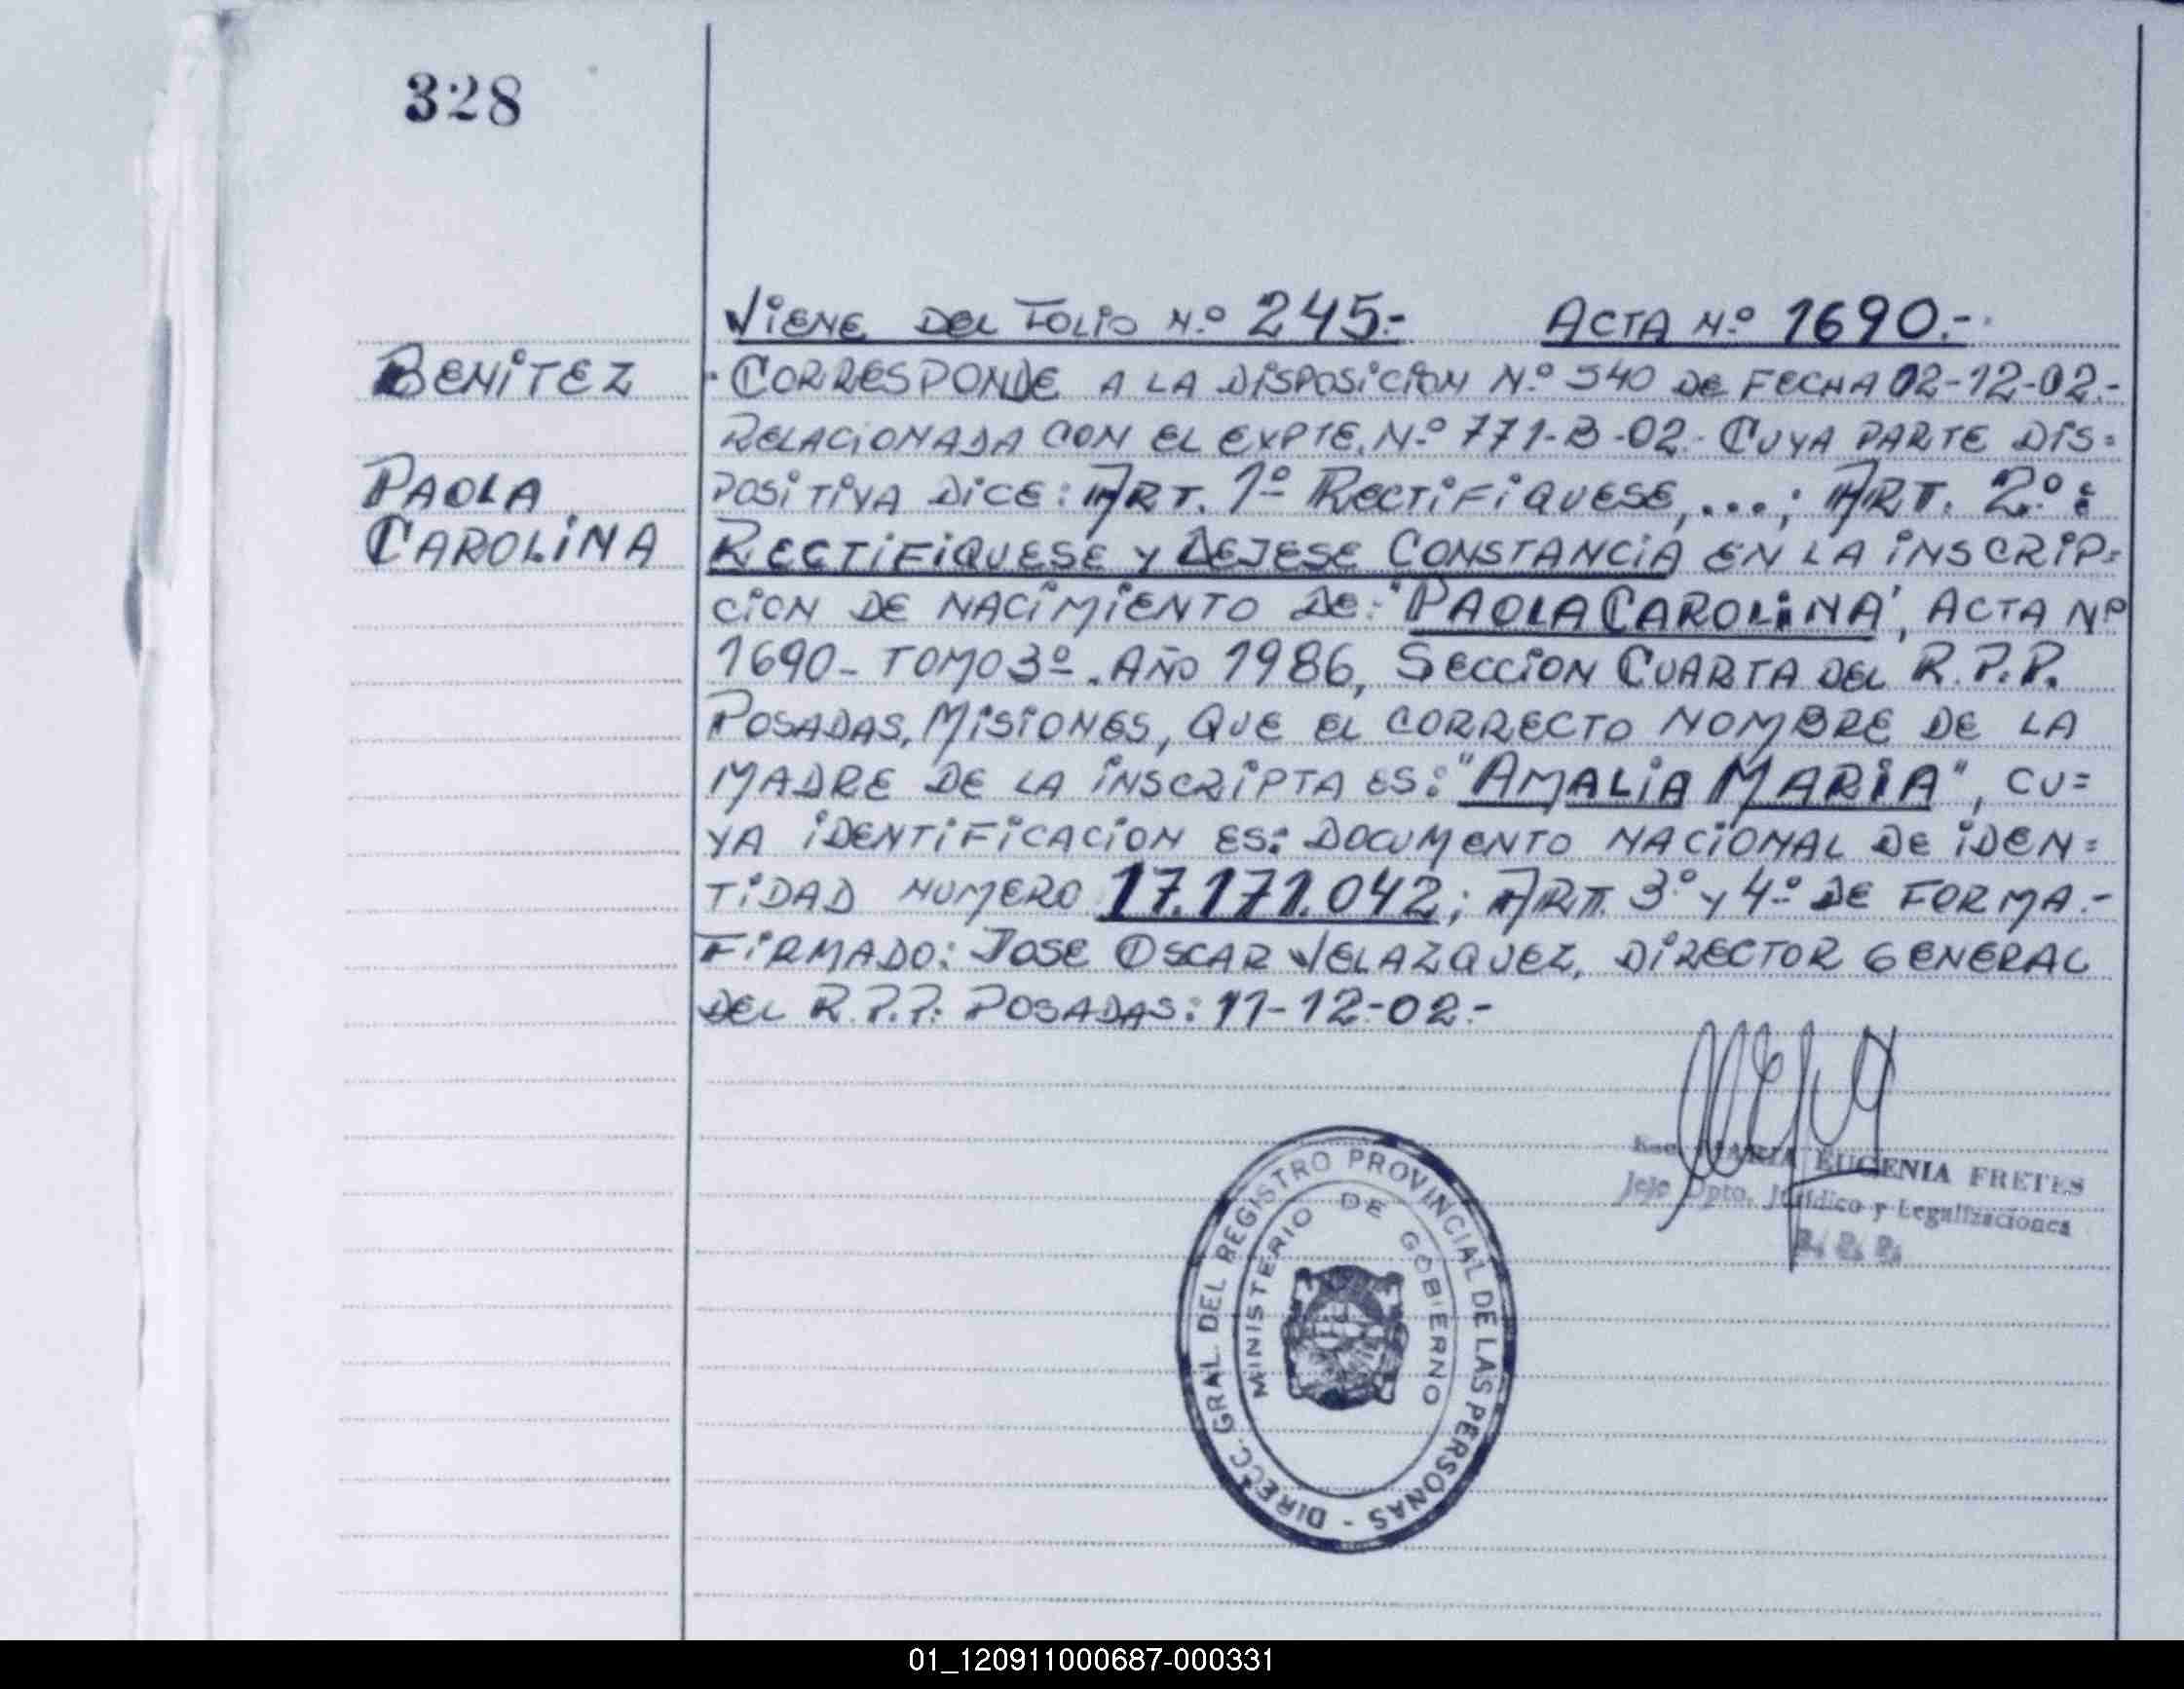 328
VIENE DEL FOLIO N.º 245.- ACTA N.º 1690.-
BENITEZ
PAOLA
CAROLINA
CORRESPONDE A LA DISPOSICION N.º 540 DE FECHA 02-12-02.-
RELACIONADA CON EL EXPTE. N.º 771-B-02. CUYA PARTE DIS=
POSITIVA DICE: ART. 1º RECTIFIQUESE,...; ART. 2º:
RECTIFIQUESE Y DEJESE CONSTANCIA EN LA INSCRIP=
CION DE NACIMIENTO DE: "PAOLA CAROLINA", ACTA Nº
1690- TOMO 3º. AÑO 1986, SECCION CUARTA DEL R.P.P.
POSADAS, MISIONES, QUE EL CORRECTO NOMBRE DE LA
MADRE DE LA INSCRIPTA ES: "AMALIA MARIA", CU=
YA IDENTIFICACION ES: DOCUMENTO NACIONAL DE IDEN=
TIDAD NUMERO 17.171.042; ART. 3º y 4º DE FORMA.-
FIRMADO: JOSE OSCAR VELAZQUEZ, DIRECTOR GENERAL
DEL R.P.P. POSADAS: 11-12-02.-
Esc. MARIA EUGENIA FRETES
Jefe Dpto. Jurídico y Legalizaciones
R. P. P.
DIRECC. GRAL. DEL REGISTRO PROVINCIAL DE LAS PERSONAS -
MINISTERIO DE GOBIERNO
01_120911000687-000331